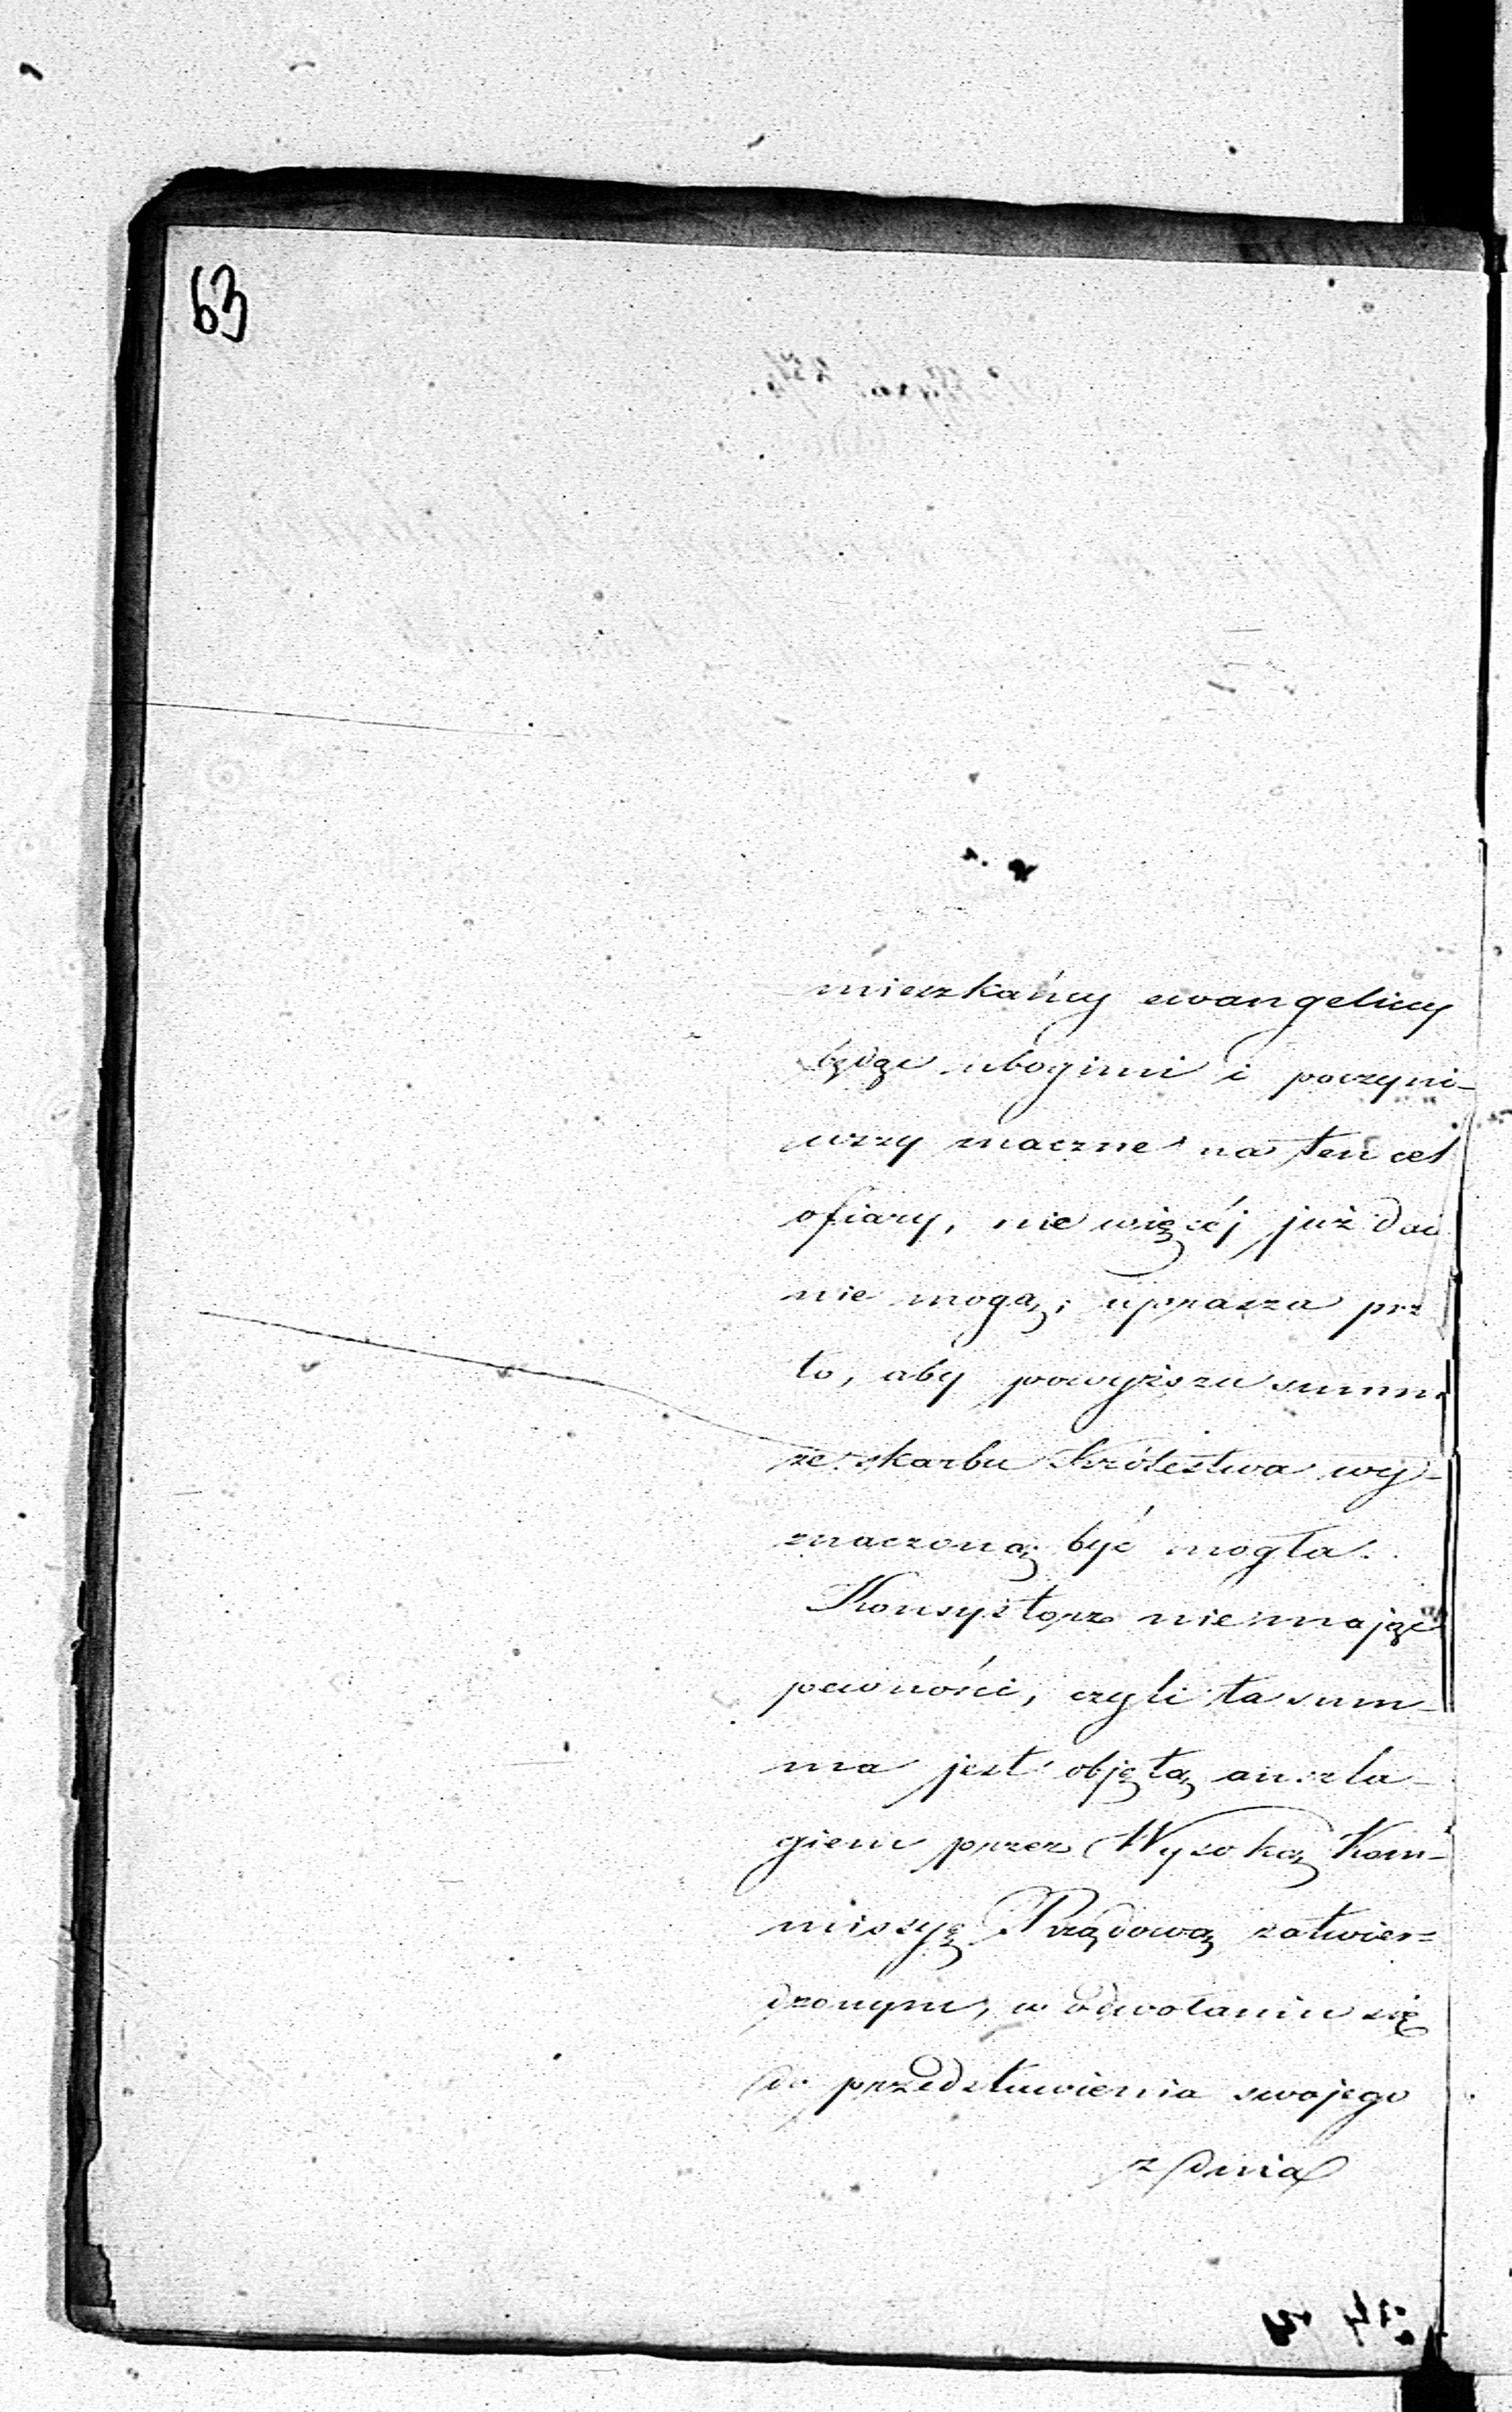 63
mieszkańcy ewangeliccy
będąc ubogimi i poczyni-
wszy znaczne na ten cel
ofiary, nic więcéj już dać
nie mogą; uprasza prze
to, aby powyższa summa
ze skarbu Królestwa wy-
znaczoną być mogła.
Konsystorz nie mając
pewności, czyli ta sum-
ma jest objętą anszla-
giem przez Wysoką Kom-
missyę Rządową zatwier-
dzonym, w odwołaniu się
do przedstawienia swojego
z dnia